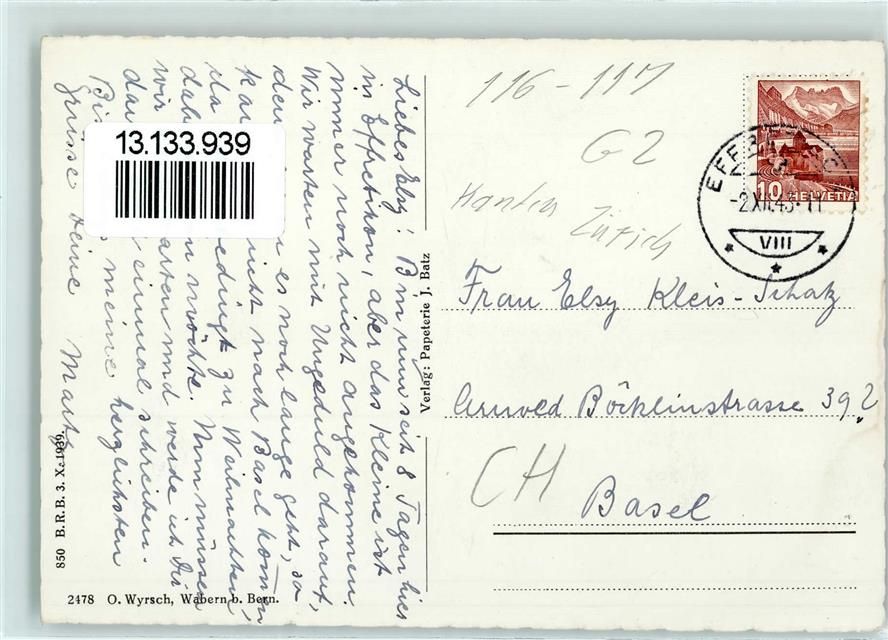 Liebes Elsy! Bin nun seit 8 Tagen hier
in Effretikon, aber das Kleine ist
immer noch nicht angekommen.
Wir warten mit Ungeduld darauf,
denn es noch lange geht, so
kann nicht nach Basel kommen,
da zu Weihnachten
daheim möchte. Nun müssen
wir warten und werde ich Dir
dann einmal schreiben.
Bis meine herzlichsten
Grüsse Deine Marte
13.133.939
116-117
G2
Kanton
Zürich
10 HELVETIA
EFFRETIKON
-2.XII.43-11
VIII
Frau Elsy Kleis-Schatz
Arnold Böcklinstrasse 392
CH
Basel
Verlag: Papeterie J. Batz
850 B.R.B. 3. X. 1939.
2478 O. Wyrsch, Wabern b. Bern.